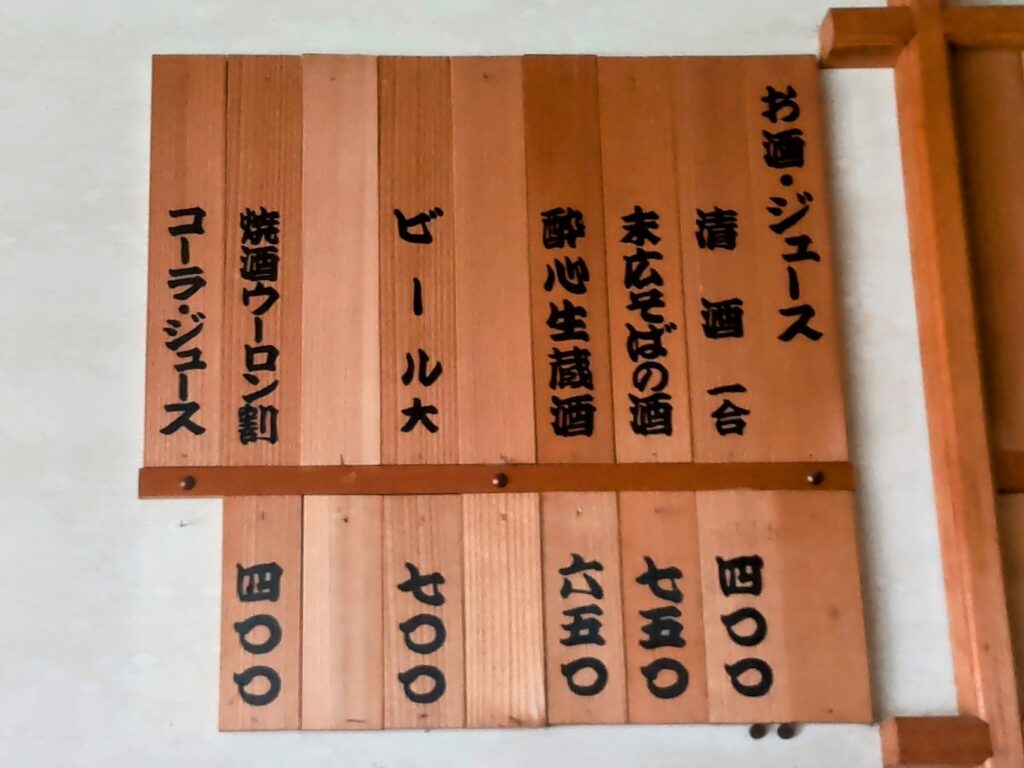 お酒・ジュース
清酒 一合
四〇〇
末広そばの酒
七五〇
酔心生蔵酒
六五〇
ビール大
七〇〇
焼酒ウーロン割
四〇〇
コーラ・ジュース